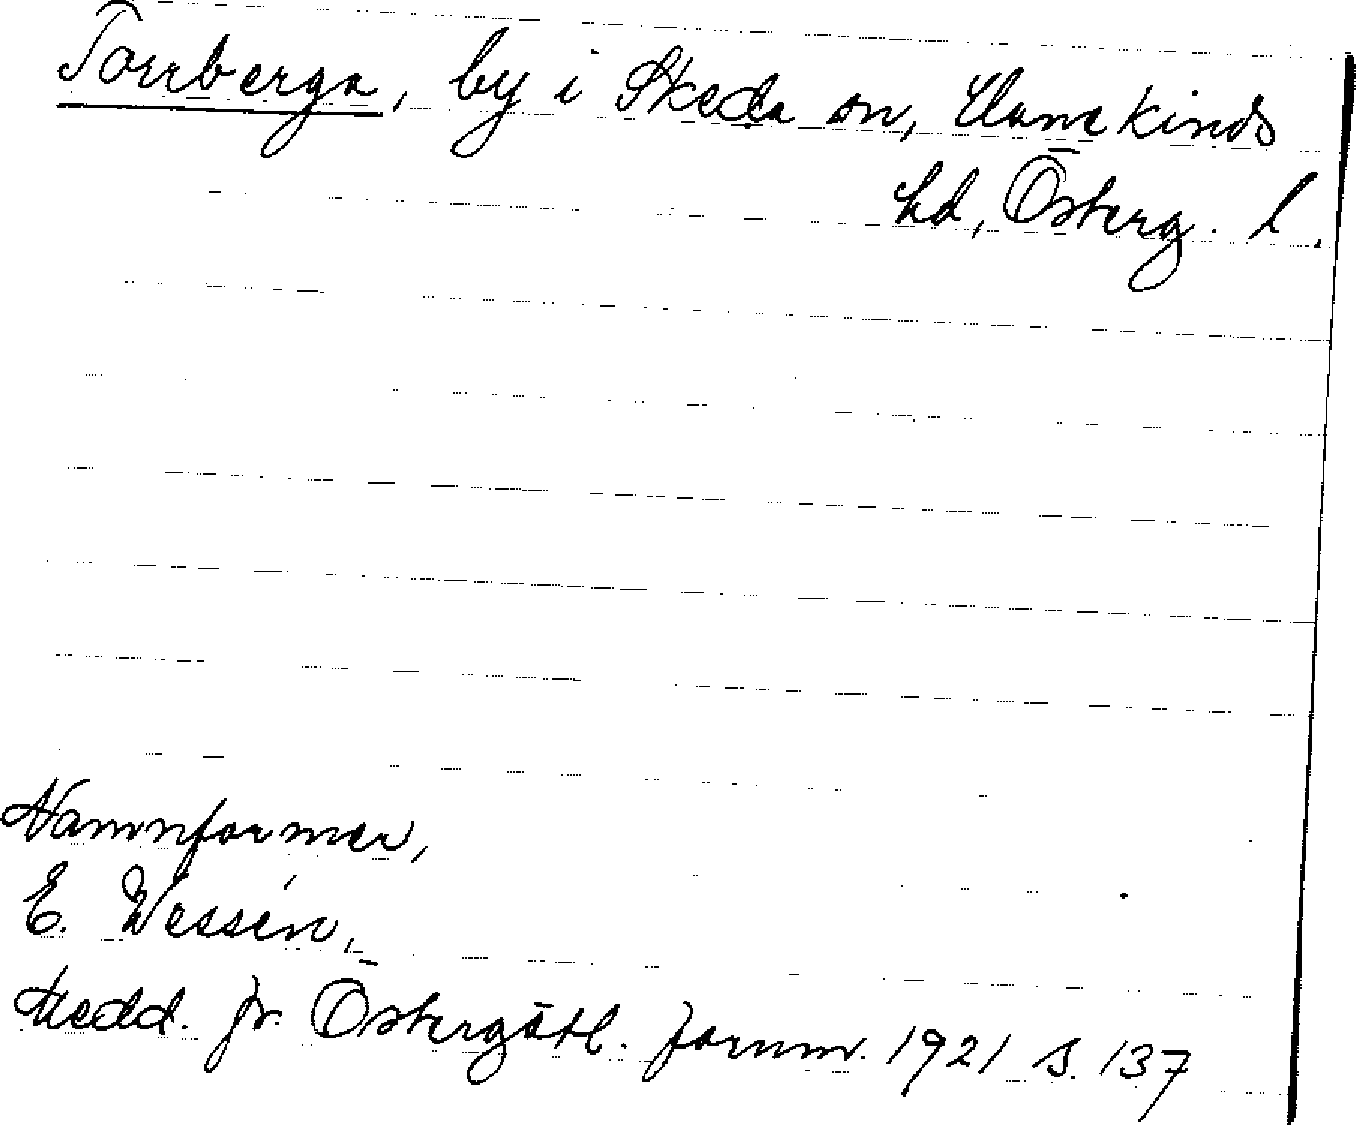 Torrberga, by i Skeda sn, Hanekinds
hd, Österg. l.
Namnformer,
E. Wessén,
Medd. fr. Östergötl. fornm. 1921 s. 137